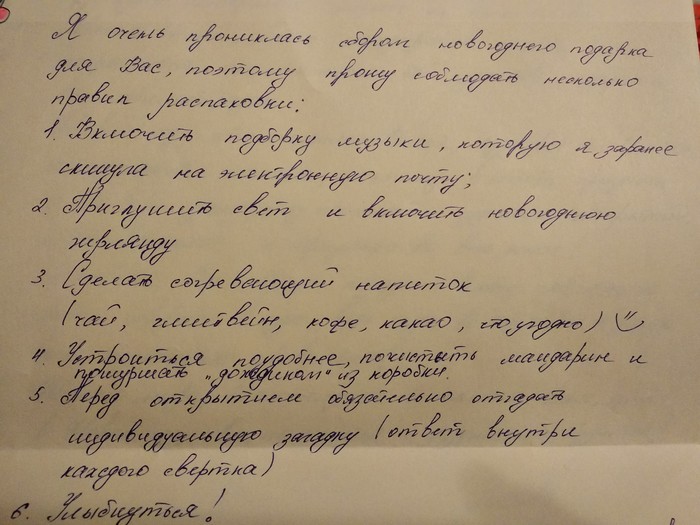 Я очень прониклась сбором новогоднего подарка
для Вас, поэтому прошу соблюдать несколько
правил распаковки:
1. Включить подборку музыки, которую я заранее
скинула на электронную почту;
2. Приглушить свет и включить новогоднюю
гирлянду
3. Сделать согревающий напиток
(чай, глинтвейн, кофе, какао, что угодно)
4. Устроиться поудобнее, почистить мандарин и
пошуршать „дождиком" из коробки.
5. Перед открытием обязательно отгадать
индивидуальную загадку (ответ внутри
каждого свертка)
6. Улыбнуться!